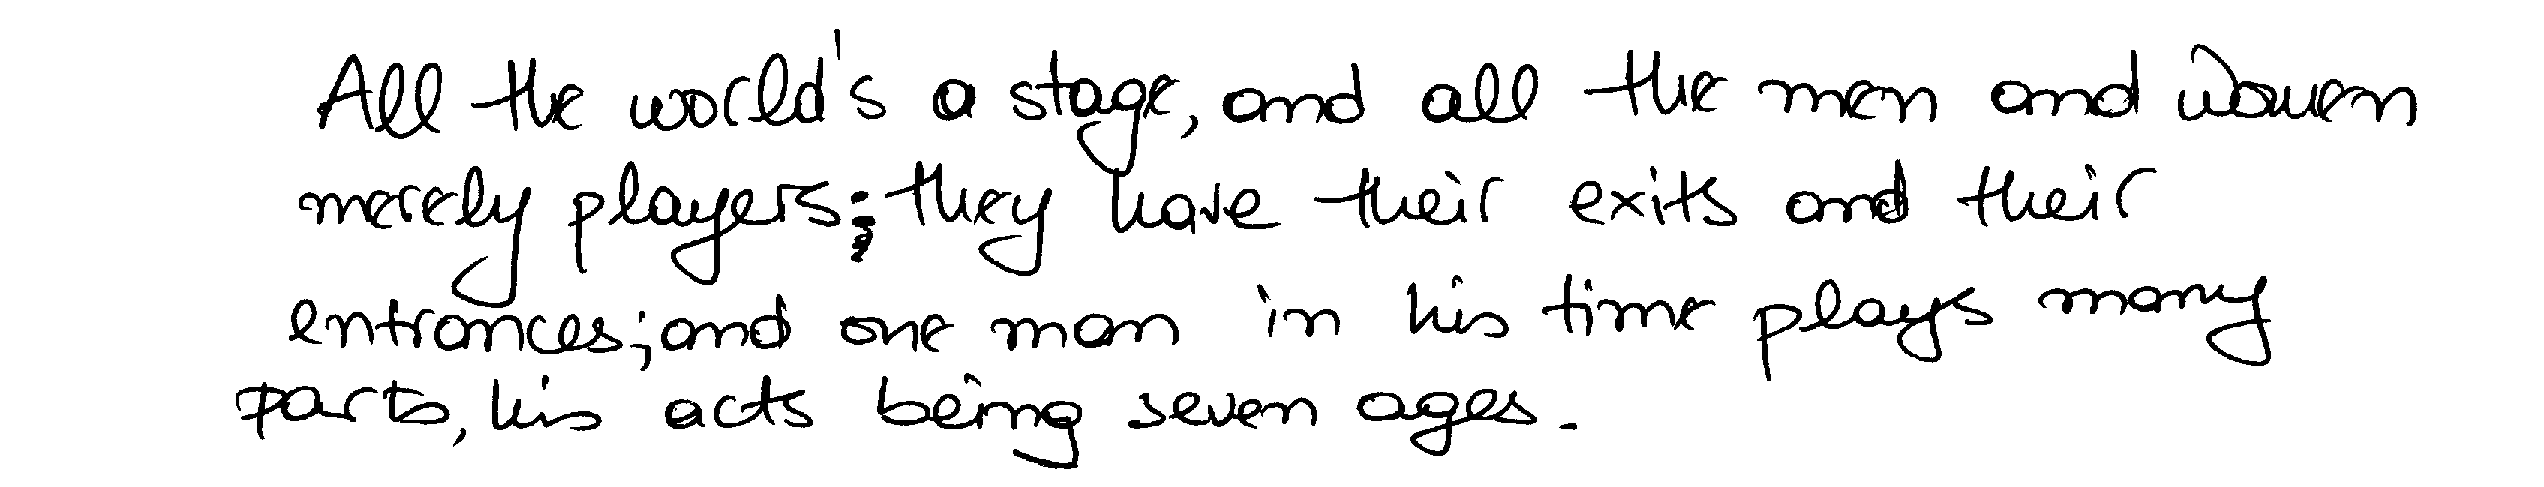 All the world's a stage, and all the men and women
merely players; they have their exits and their
entrances; and one man in his time plays many
parts, his acts being seven ages.